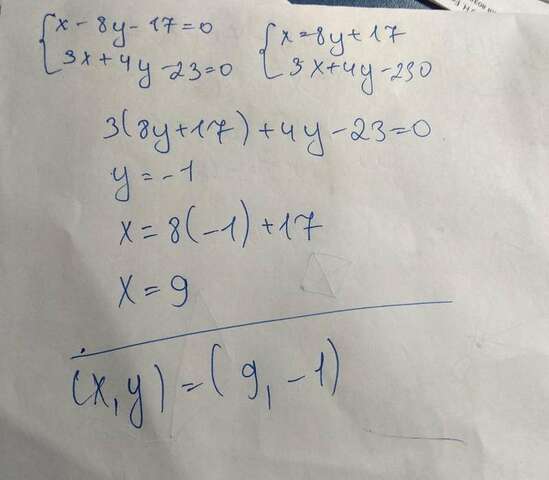 x - 8y - 17 = 0
3x + 4y - 23 = 0
x = 8y + 17
3x + 4y - 230
3(8y + 17) + 4y - 23 = 0
y = -1
x = 8(-1) + 17
x = 9
(x, y) = (9, -1)